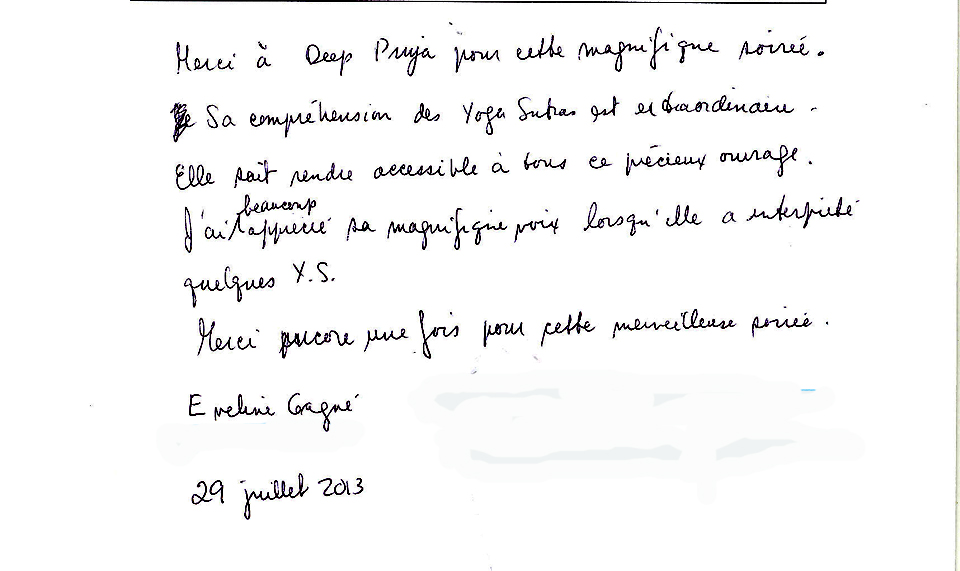 Merci à Deep Puja pour cette magnifique soirée.
Sa compréhension des Yoga Sutras est extraordinaire.
Elle sait rendre accessible à tous ce précieux ouvrage.
J'ai beaucoup apprécié sa magnifique voix lorsqu'elle a interprété
quelques Y.S.
Merci encore une fois pour cette merveilleuse soirée.
Eveline Gagné
29 juillet 2013